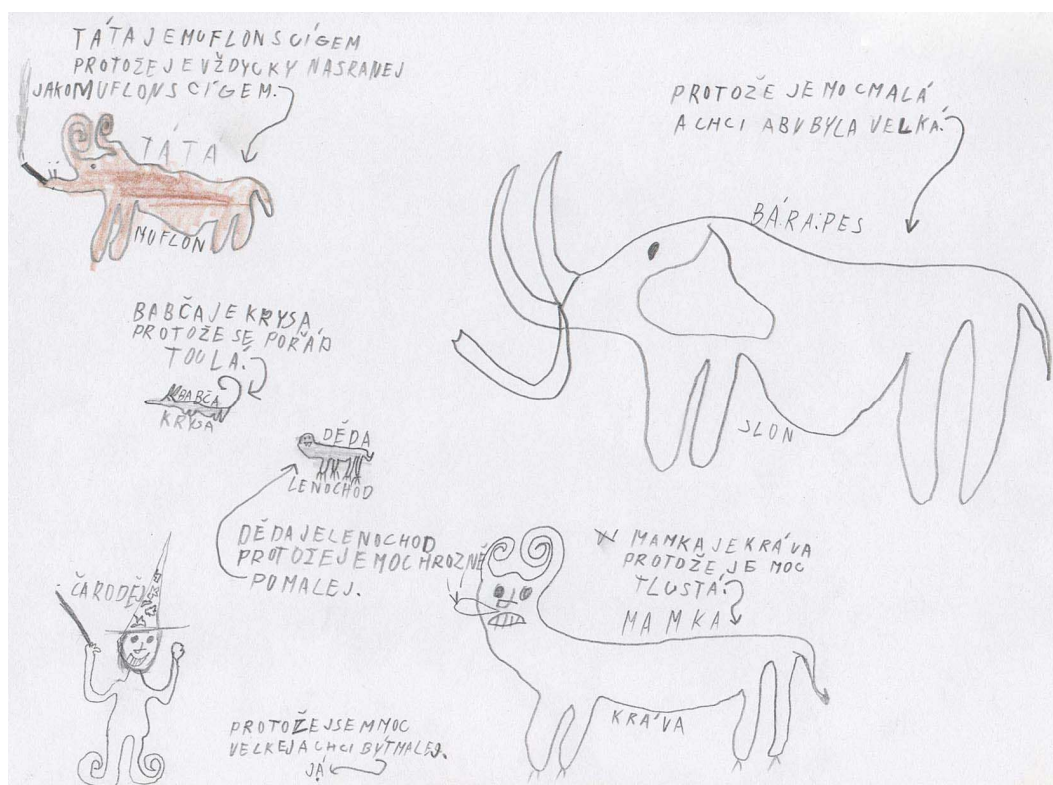 TÁTA JE MUFLON S CÍGEM
PROTOŽE JE VŽDYCKY NASRANEJ
JAKO MUFLON S CÍGEM.
TÁTA
MUFLON
PROTOŽE JE MOC MALÁ
A CHCI ABY BYLA VELKÁ.
BÁRA:PES
SLON
BABČA JE KRYSA
PROTOŽE SE POŘÁD
TOULÁ.
BABČA
KRYSA
DĚDA
LENOCHOD
DĚDA JE LENOCHOD
PROTOŽE JE MOC HROZNĚ
POMALEJ.
MAMKA JE KRÁVA
PROTOŽE JE MOC
TLUSTÁ.
MAMKA
KRÁVA
ČARODĚJ
PROTOŽE JSEM MOC
VELKEJ A CHCI BÝT MALEJ.
JÁ